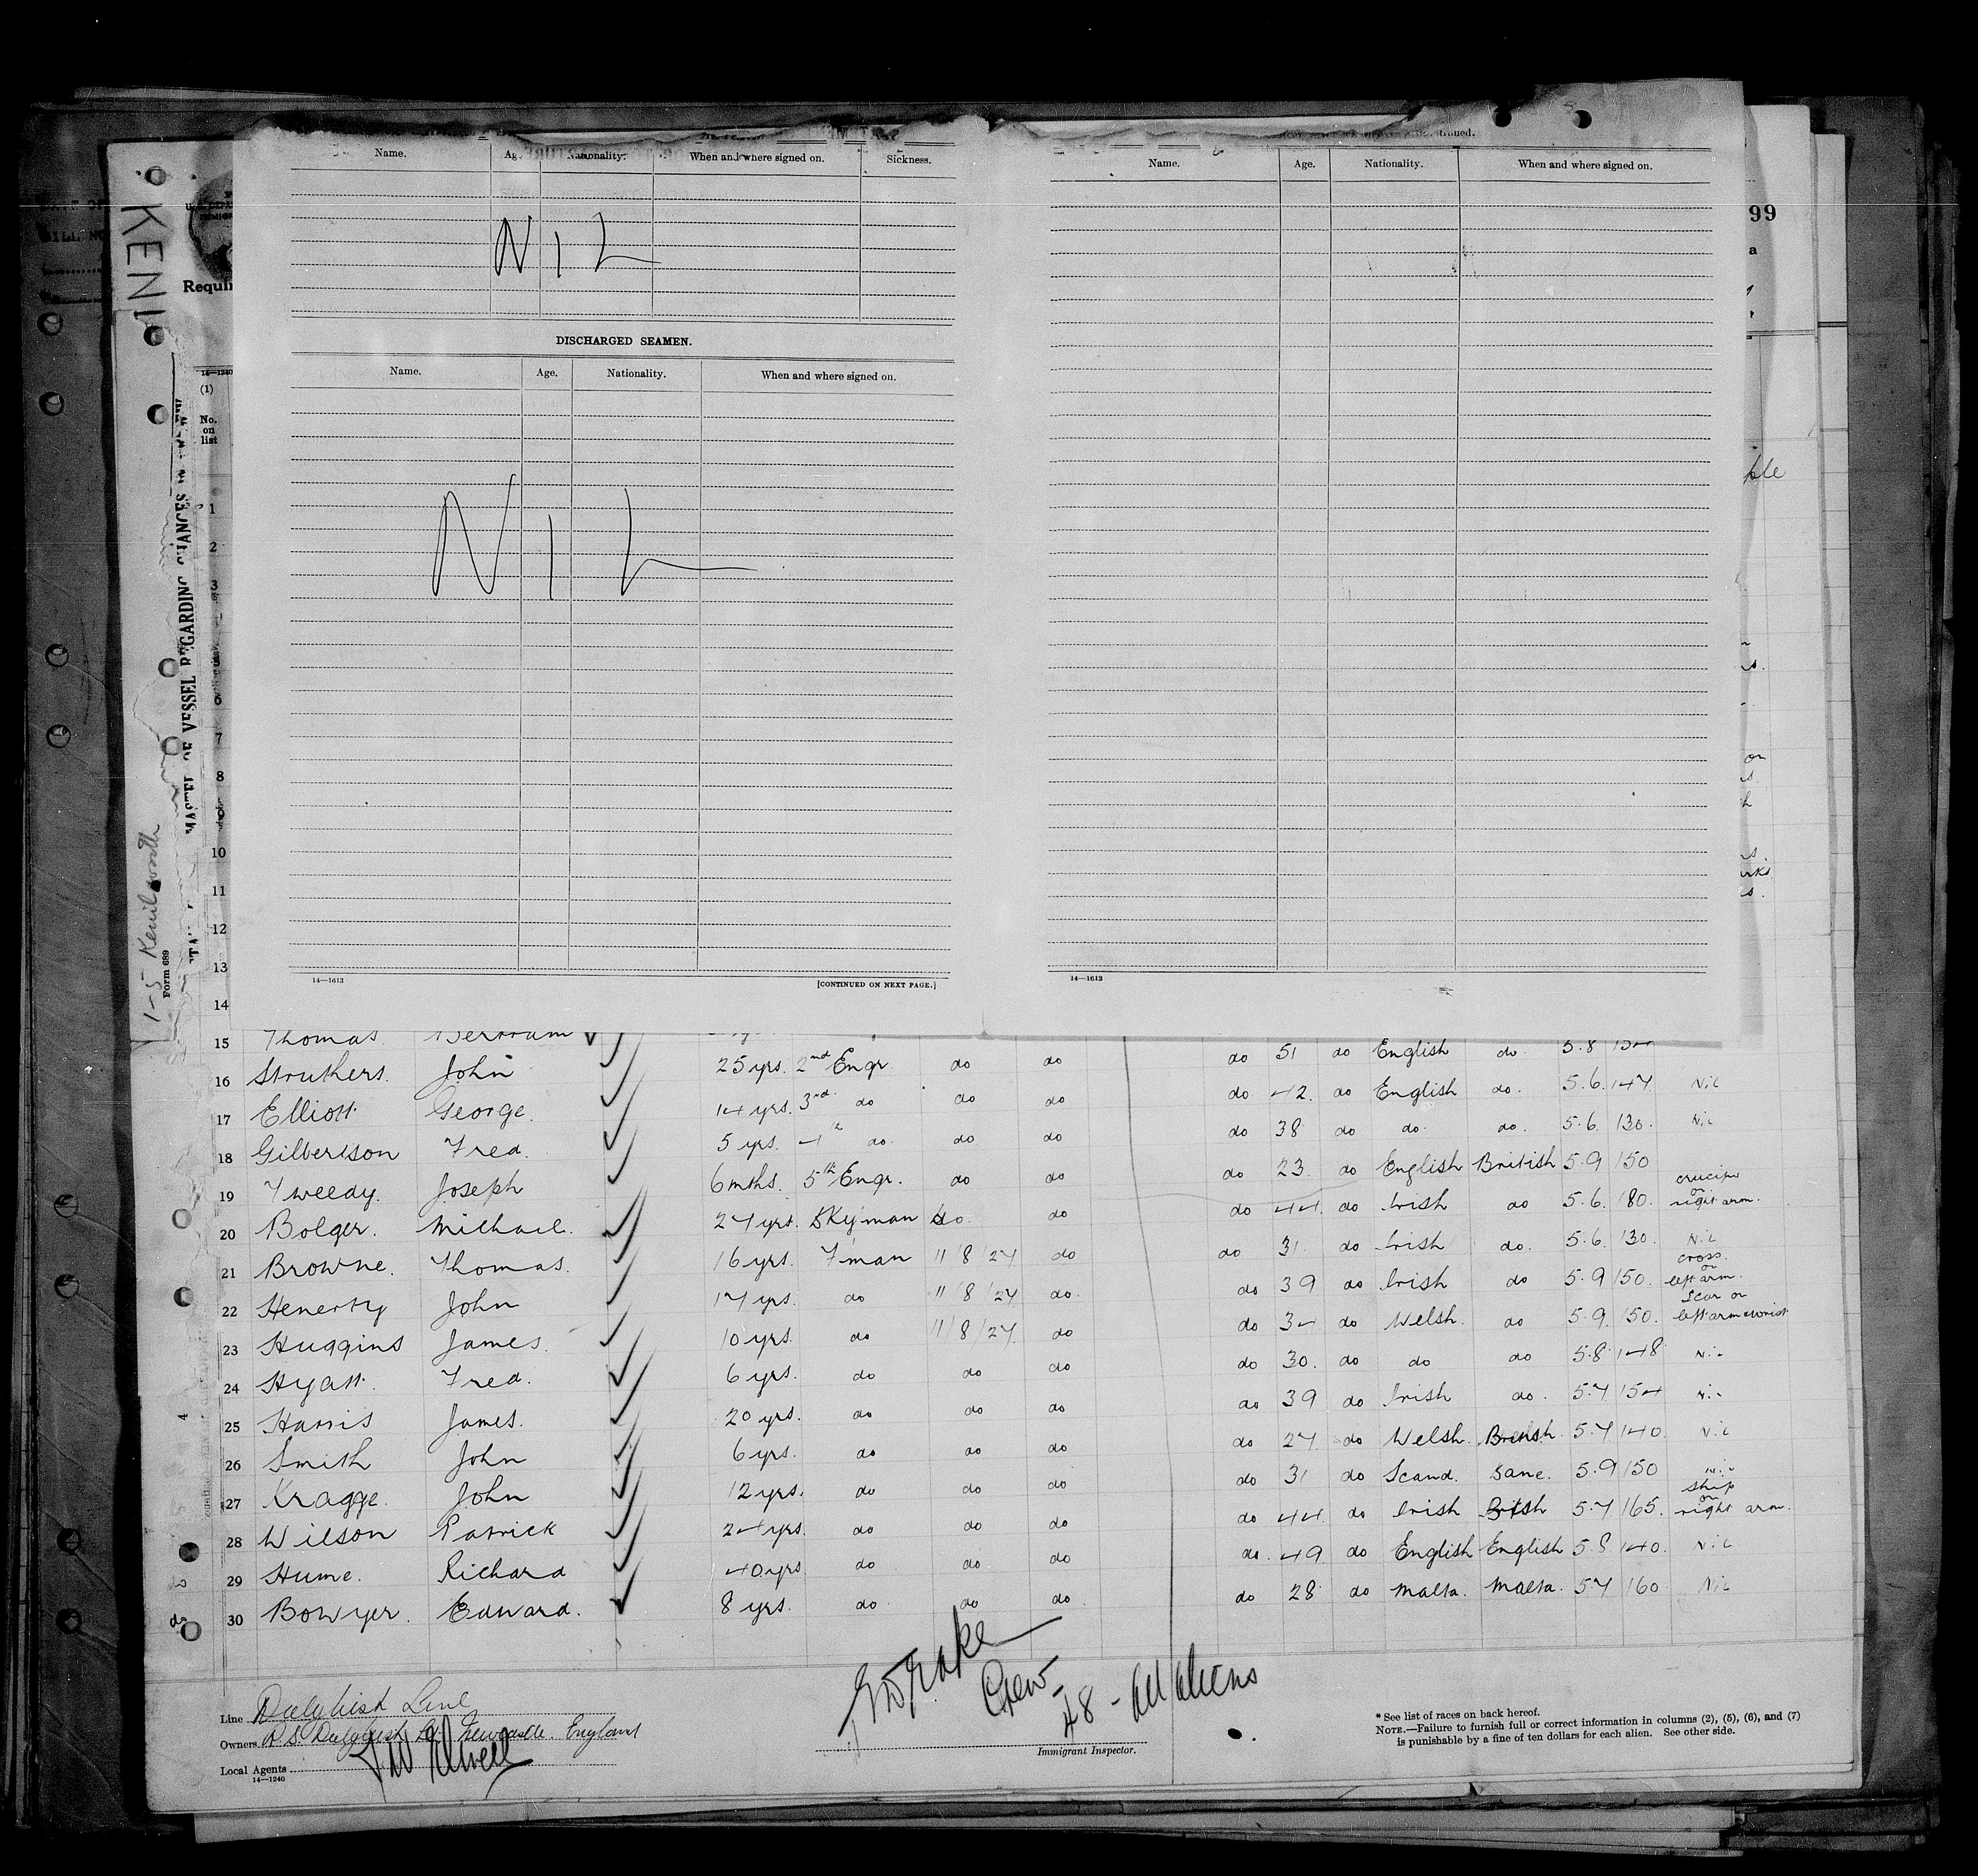 Name. Nationality. When and where signed on. Sickness.
NIL
DISCHARGED SEAMEN.
Name. Age. Nationality. When and where signed on.
NIL
14—1613 [CONTINUED ON NEXT PAGE.]
Name. Age. Nationality. When and where signed on.
14—1613
99
KENI
1-5 Kenilworth
Form 689
MASTER OF VESSEL REGARDING CHANGES IN CREW
14—1240
(1)
No.
on
list
1
2
3
6
7
8
9
10
11
12
13
14
15 Thomas Bertram
16 Struthers. John 25 yrs. 2nd Engr do do do 51 do English do. 5.8 154
17 Elliott George. 14 yrs. 3rd do do do do 42. do English do. 5.6. 147 Nil
18 Gilbertson Fred. 5 yrs. 4th do. do do do 38 do do. do. 5.6. 130. Nil
19 Tweedy. Joseph 6 mths. 5th Engr. do do do 23. do English British 5.9 150
20 Bolger. Michael. 27 yrs. Dkyman do. do do 44. do Irish do 5.6. 180. crucifix on right arm.
21 Browne. Thomas. 16 yrs. F'man 11/8/27 do do 31 do Irish do. 5.6. 130. Nil
22 Henerty John 17 yrs. do 11/8/27 do. do 39 do Irish do 5.9 150. cross on left arm.
23 Huggins James. 10 yrs. do 11/8/27. do do 34 do Welsh. do 5.9. 150. Scar on left arm & wrist
24 Hyatt. Fred. 6 yrs. do do do do 30. do do do 5.8. 148 Nil
25 Harris James. 20 yrs. do do do do 39 do Irish do. 5.7 154 Nil
26 Smith John 6 yrs. do do do do 27. do Welsh. British. 5.7 140. Nil
27 Kragge. John 12 yrs. do do do do 31 do Scand. Dane. 5.9 150 Nil
28 Wilson Patrick 24 yrs. do do do do 44. do Irish British 5.7 165. ship on right arm.
29 Hume. Richard 40 yrs do do. do do. 49. do English English 5.8 140. Nil
30 Bowyer. Edward. 8 yrs. do do do. do 28 do Malta. Malta. 5.7 160 Nil
Crew 48 - all aliens
Line Dalgliesh Line
Owners R.S. Dalgliesh Ld. Newcastle. England
Local Agents
14—1240
Immigrant Inspector.
* See list of races on back hereof.
NOTE.—Failure to furnish full or correct information in columns (2), (5), (6), and (7)
is punishable by a fine of ten dollars for each alien. See other side.